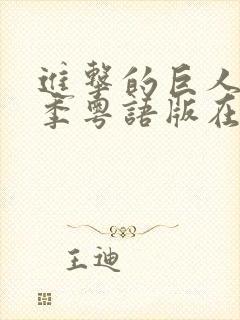 進撃的巨人
季粵語版在
王迪